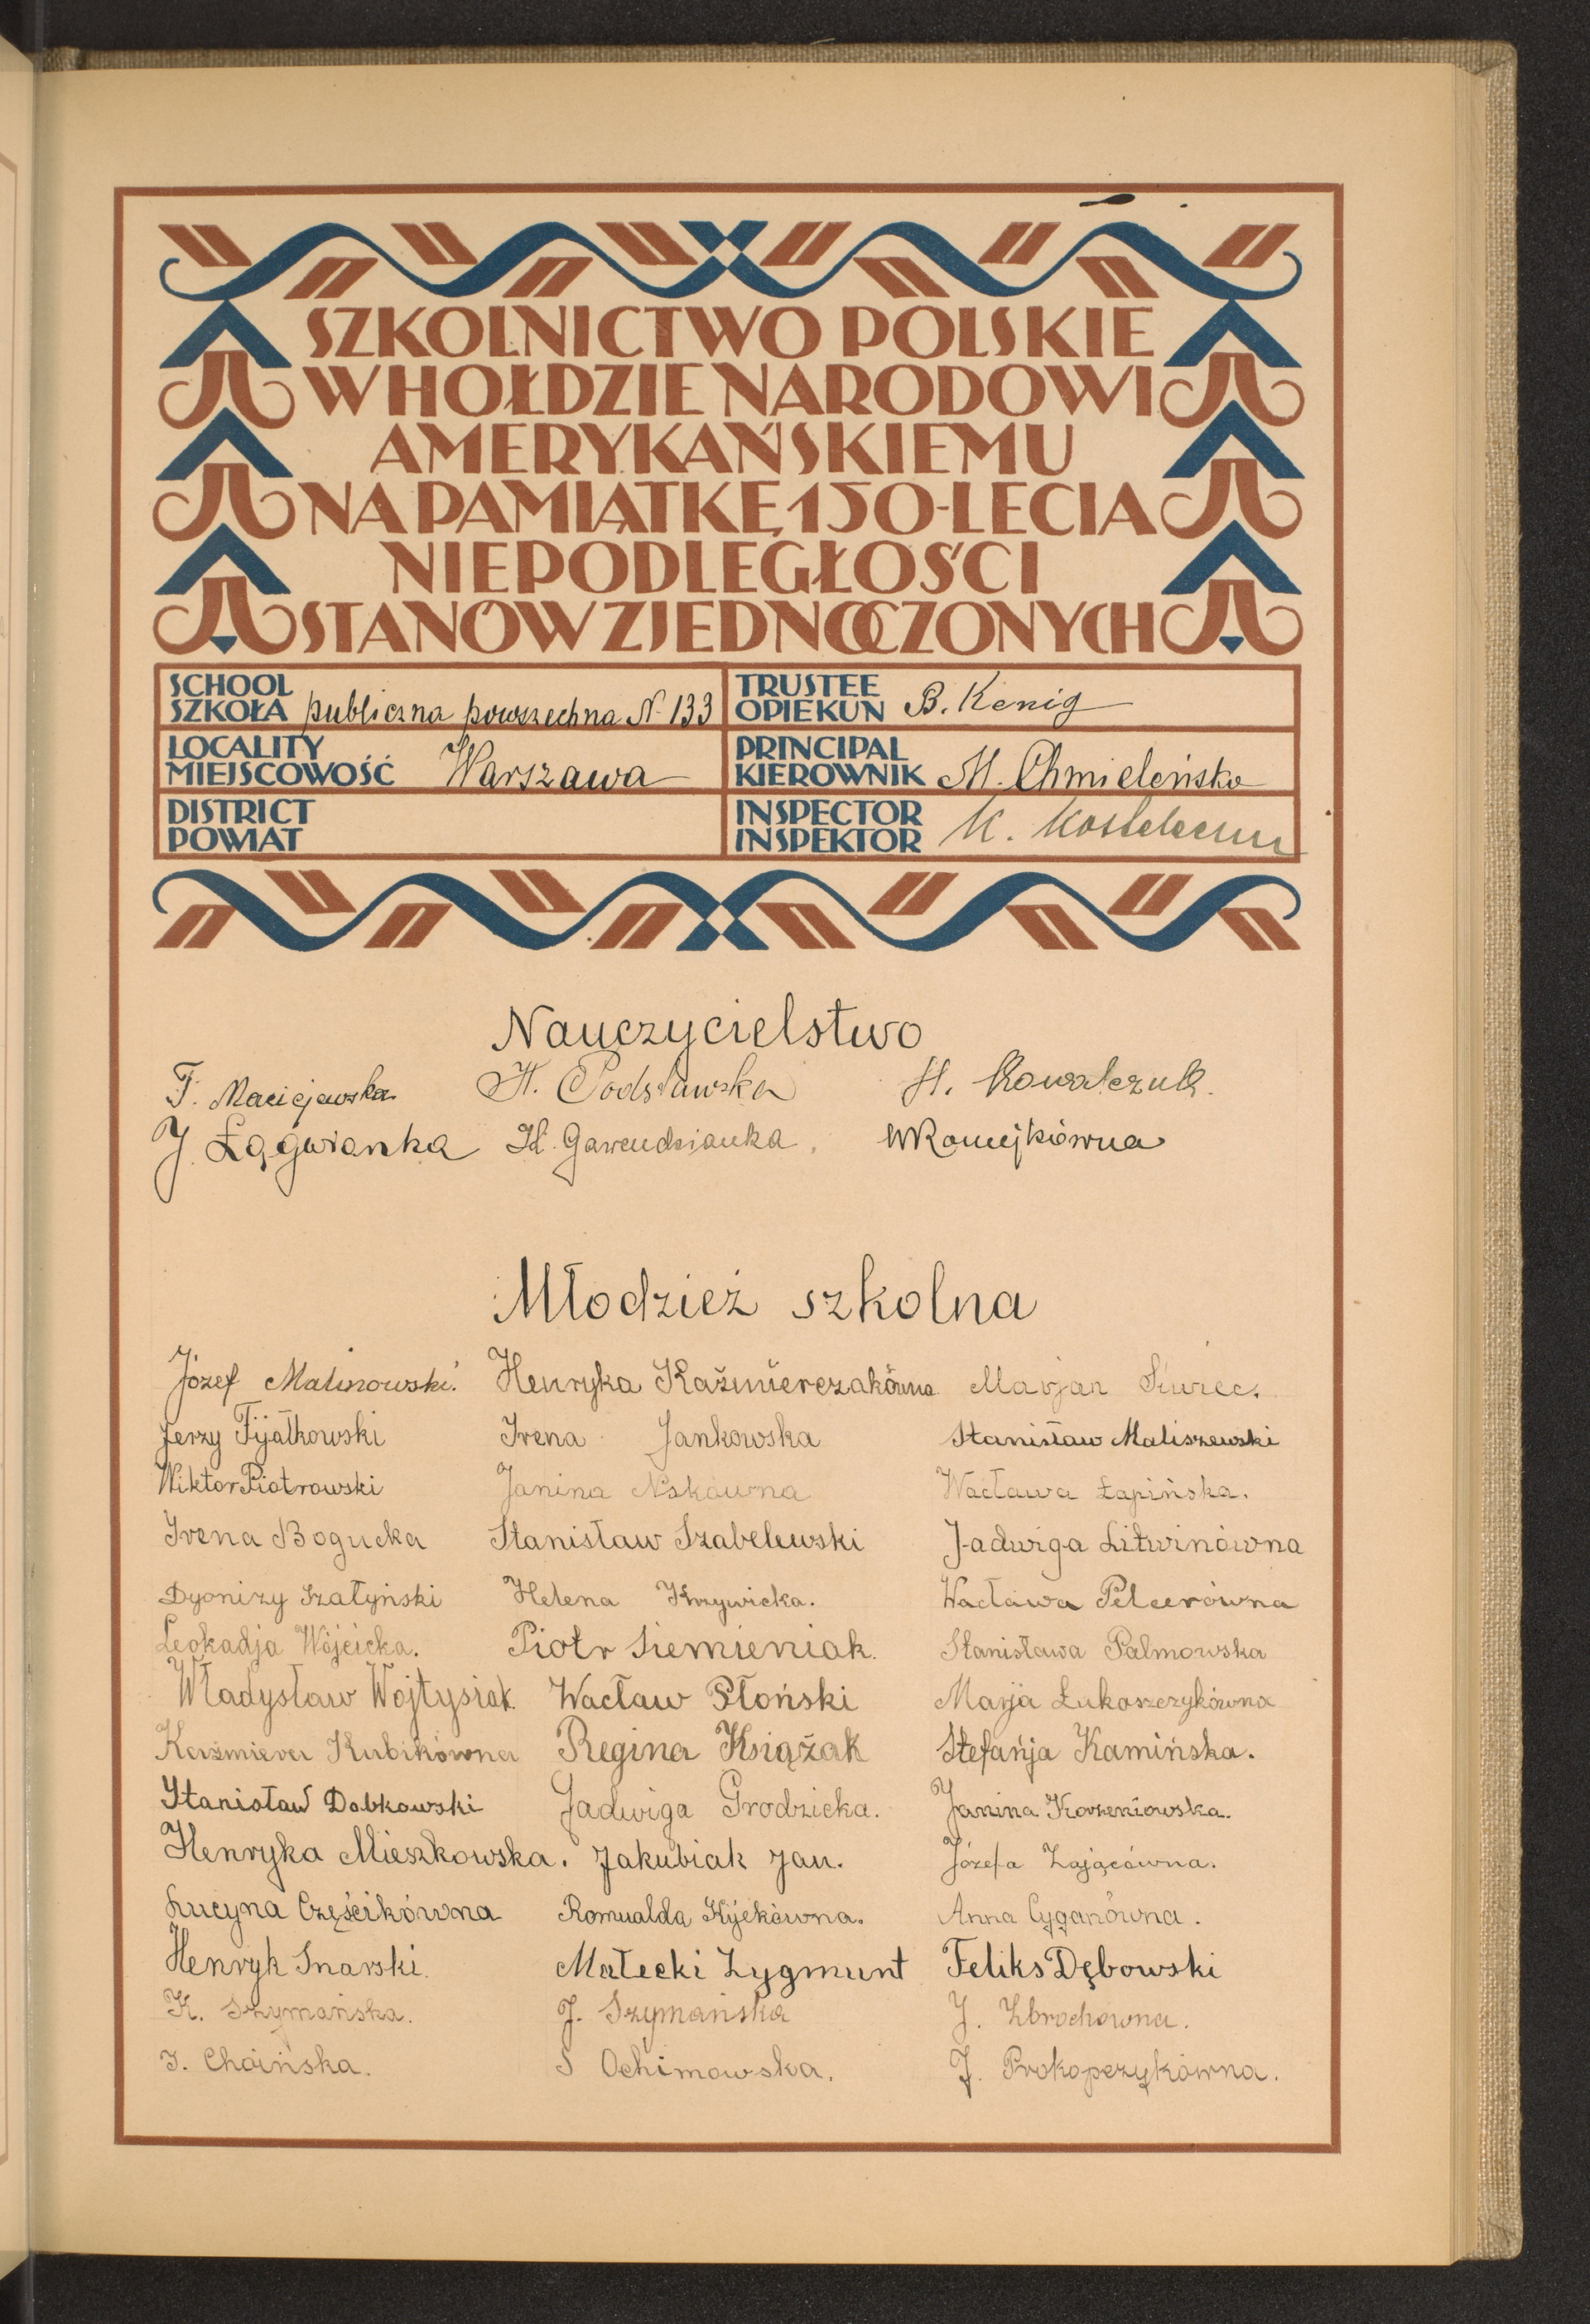 SZKOLNICTWO POLSKIE
W HOŁDZIE NARODOWI
AMERYKAŃSKIEMU
NA PAMIĄTKĘ 150-LECIA
NIEPODLEGŁOŚCI
STANÓW ZJEDNOCZONYCH
SCHOOL
SZKOŁA publiczna powszechna N 133
TRUSTEE
OPIEKUN B. Kenig
LOCALITY
MIEJSCOWOŚĆ Warszawa
PRINCIPAL
KIEROWNIK M. Chmieleńska
DISTRICT
POWIAT
INSPECTOR
INSPEKTOR K.
Nauczycielstwo
F. Maciejewska H. Podsławska H. Kowalczuk.
J. Łągwianka H. Gawendzianka. W Romejkówna
Młodzież szkolna
Józef Malinowski. Henryka Kaźmierczakówna Marjan Siwiec.
Jerzy Fijałkowski Irena Jankowska Stanisław Maliszewski
Wiktor Piotrowski Janina Wacława Łapińska.
Irena Bogucka Stanisław Szabelewski Jadwiga Litwinówna
Dyonizy Szatyński Helena Krzywicka. Wacława Pelcerówna
Leokadja Wójcicka. Piotr Siemieniak. Stanisława Palmowska
Władysław Wojtysiak. Wacław Płoński Marja Łukaszczykówna
Kaźmiera Kubikówna Regina Książak Stefańja Kamińska.
Stanisław Dobkowski Jadwiga Grodzicka. Janina Korzeniowska.
Henryka Mieszkowska. Jakubiak Jan. Józefa Zającówna.
Lucyna Częścikówna Romualda Kijekówna. Anna Cyganówna.
Henryk Snarski. Małecki Zygmunt Feliks Dębowski
K. Szymańska. J. Szymańska J. Zbrochówna.
J. Choińska. S Ochimowska. J. Prokopczykówna.